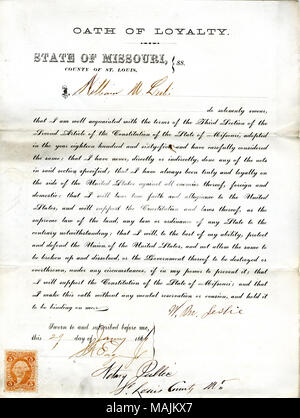 OATH OF LOYALTY.
STATE OF MISSOURI,
COUNTY OF ST. LOUIS, } SS.
I, William M
do solemnly swear,
that I am well acquainted with the terms of the Third Section of the
Second Article of the Constitution of the State of Missouri, adopted
in the year eighteen hundred and sixty-five, and have carefully considered
the same; that I have never, directly or indirectly, done any of the acts
in said section specified; that I have always been truly and loyally on
the side of the United States against all enemies thereof, foreign and
domestic; that I will bear true faith and allegiance to the United
States, and will support the Constitution and laws thereof, as the
supreme law of the land, any law or ordinance of any State to the
contrary notwithstanding; that I will, to the best of my ability, protect
and defend the Union of the United States, and not allow the same
to be broken up and dissolved, or the Government thereof to be destroyed or
overthrown, under any circumstances, if in my power to prevent it; that
I will support the Constitution of the State of Missouri; and that
I make this oath without any mental reservation or evasion, and hold it
to be binding on me.
Sworn to and subscribed before me,
this 29 day of 186
Notary Public
St. Louis County Mo
alamy
Image ID: MAJKX7
www.alamy.com